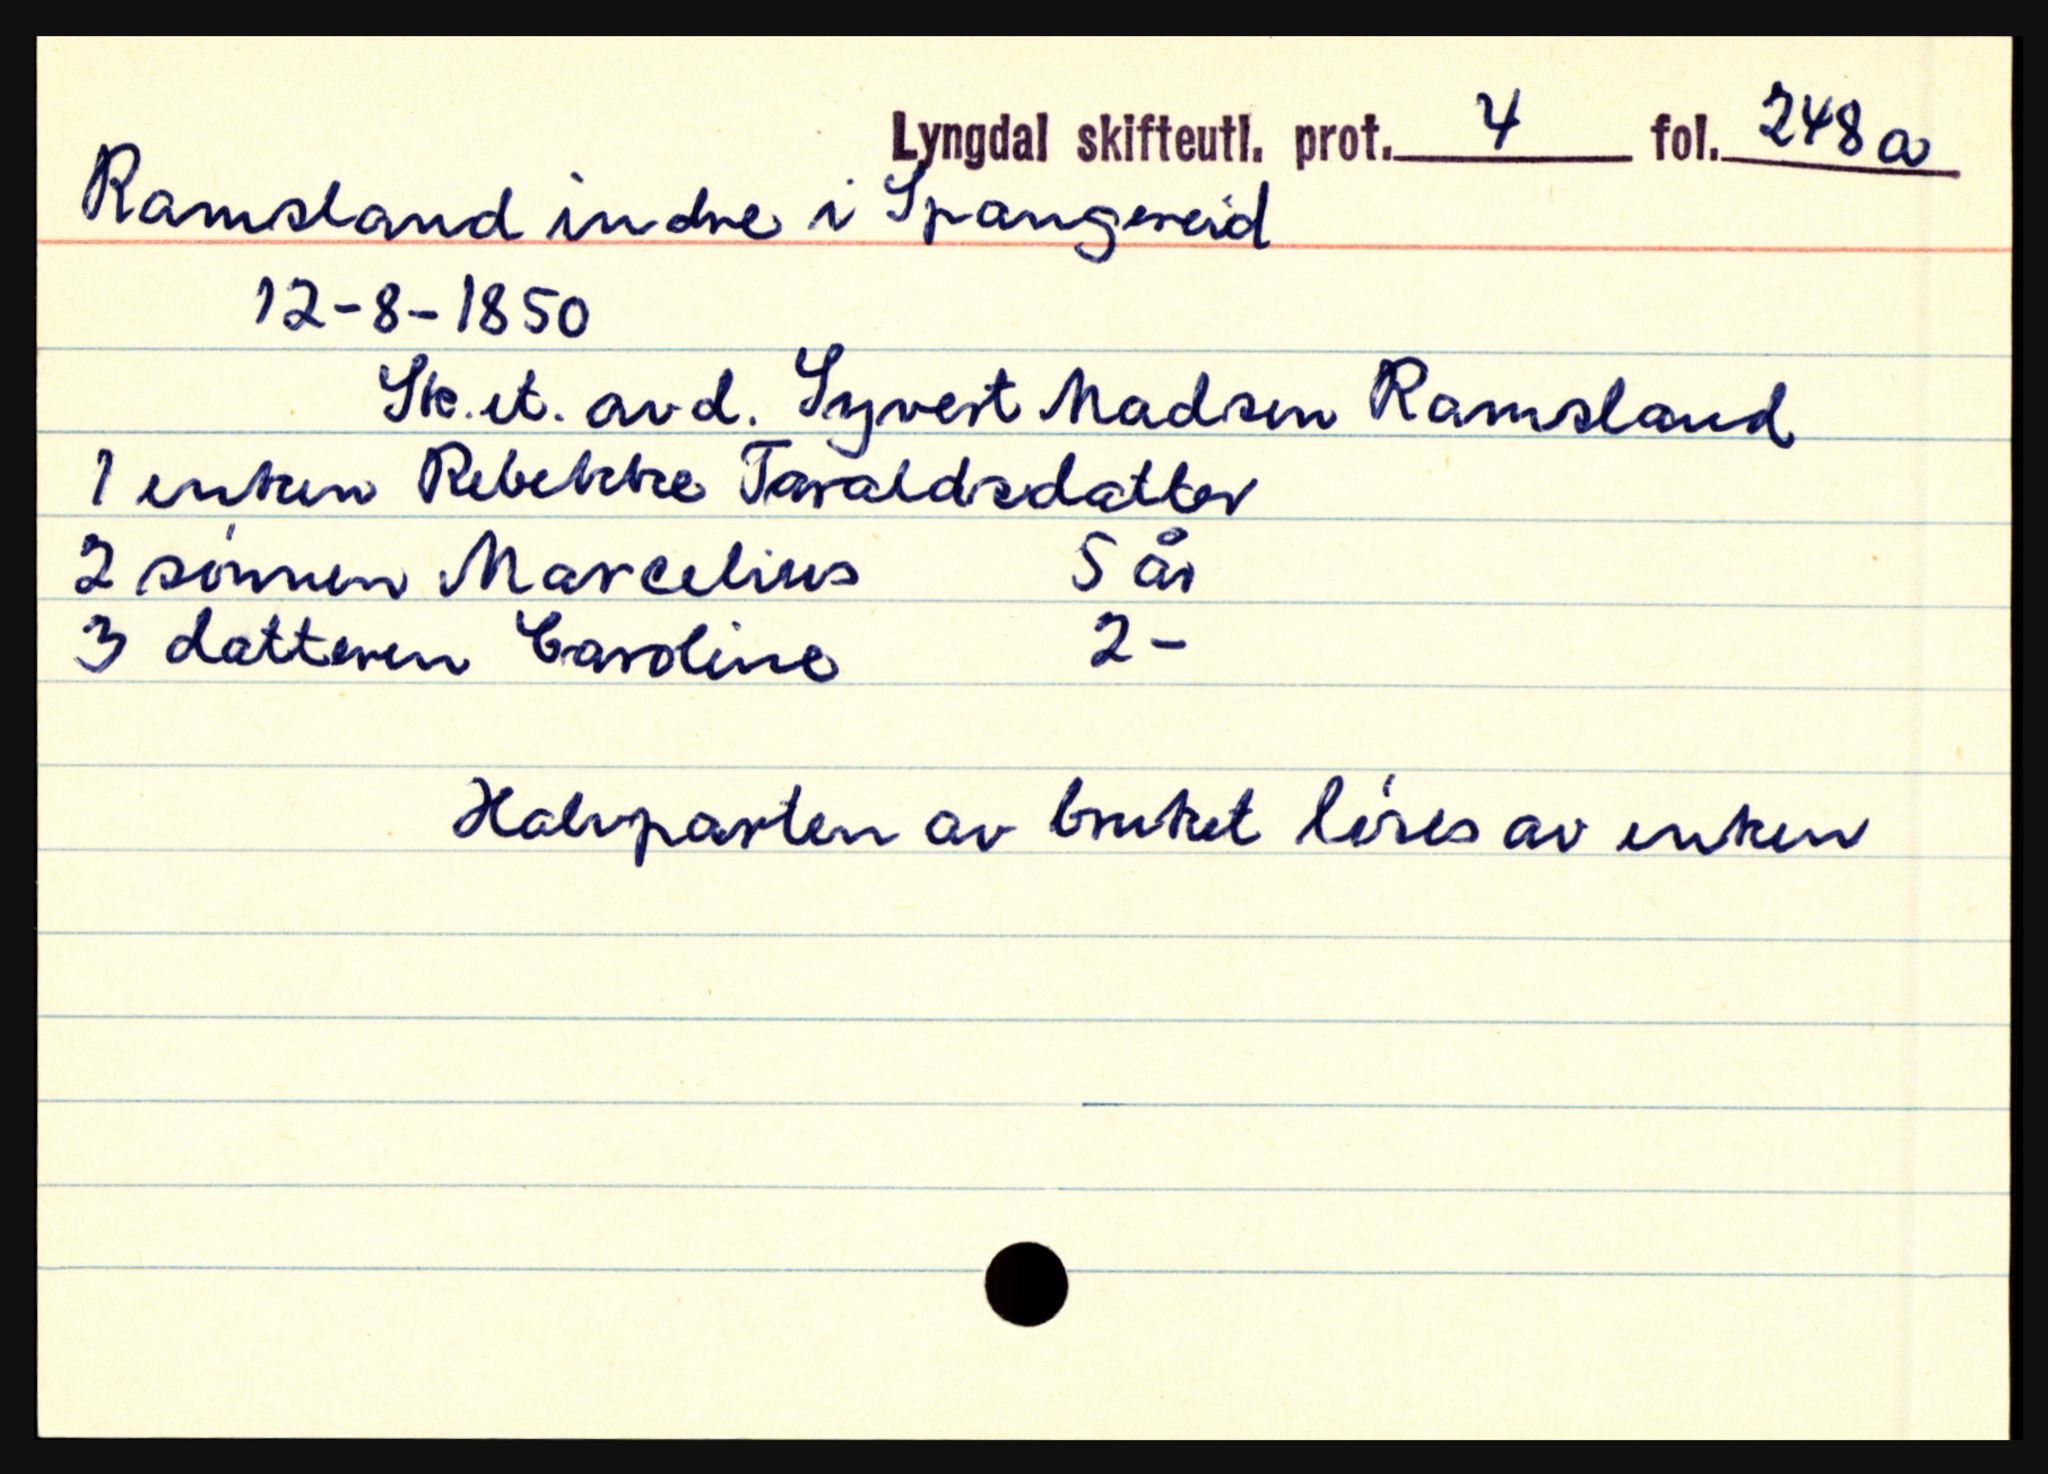 Lyngdal skifteutl. prot. 4 fol. 248a
Ramsland indre i Spangereid
12-8-1850
Sk. et. avd. Syvert Madsen Ramsland
1 enken Rebekke Taraldsdatter
2 sønnen Marcelius 5 år
3 datteren Caroline 2-
Halvparten av bruket løses av enken